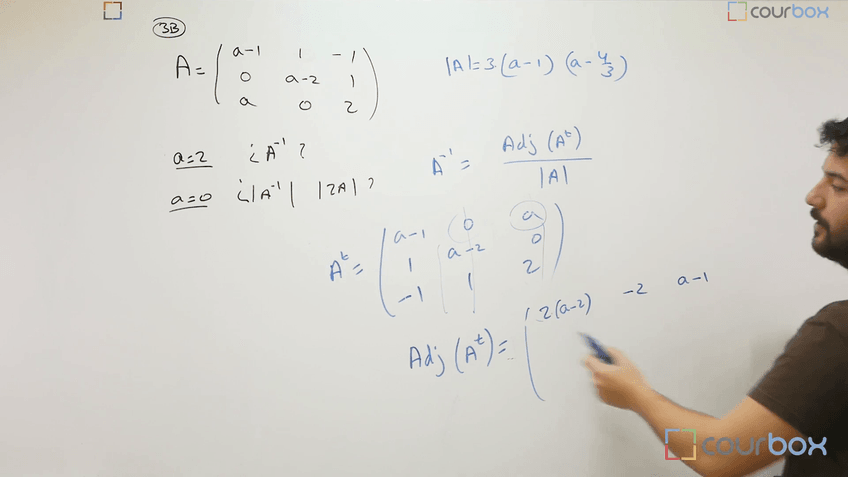 courbox
3B
A = ( a-1 1 -1
0 a-2 1
a 0 2 )
|A| = 3·(a-1) (a-4/3)
a=2 ¿A⁻¹?
a=0 ¿|A⁻¹| |2A|?
A⁻¹ = Adj (Aᵗ) / |A|
Aᵗ = ( a-1 0 a
1 a-2 0
-1 1 2 )
Adj (Aᵗ) = ( 2(a-2) -2 a-1
courbox